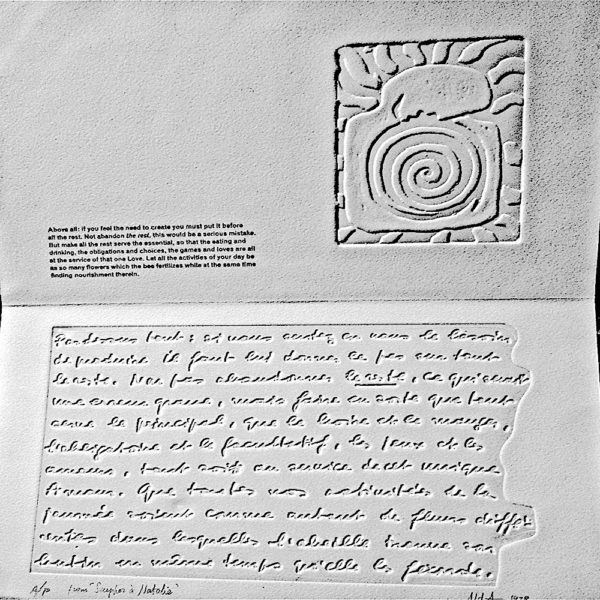 Above all: if you feel the need to create you must put it before
all the rest. Not abandon the rest, this would be a serious mistake.
But make all the rest serve the essential, so that the eating and
drinking, the obligations and choices, the games and loves are all
at the service of that one Love. Let all the activities of your day be
as so many flowers which the bee fertilizes while at the same time
finding nourishment therein.
tout: si vous sentez en vous le besoin
de produire il faut lui donner le pas sur tout
le reste. Non pas abandonner le reste, ce qui serait
une erreur grave, mais faire en sorte que tout
serve le principal, que le boire et le manger,
l'obligatoire et le facultatif, les jeux et les
amours, tout soit au service de cet unique
Amour. Que toutes vos activités de la
journée soient comme autant de fleurs diffé-
rentes dans lesquelles l'abeille trouve son
butin en même temps qu'elle les féconde.
A/p from "Seuphor à Natalie" 1978